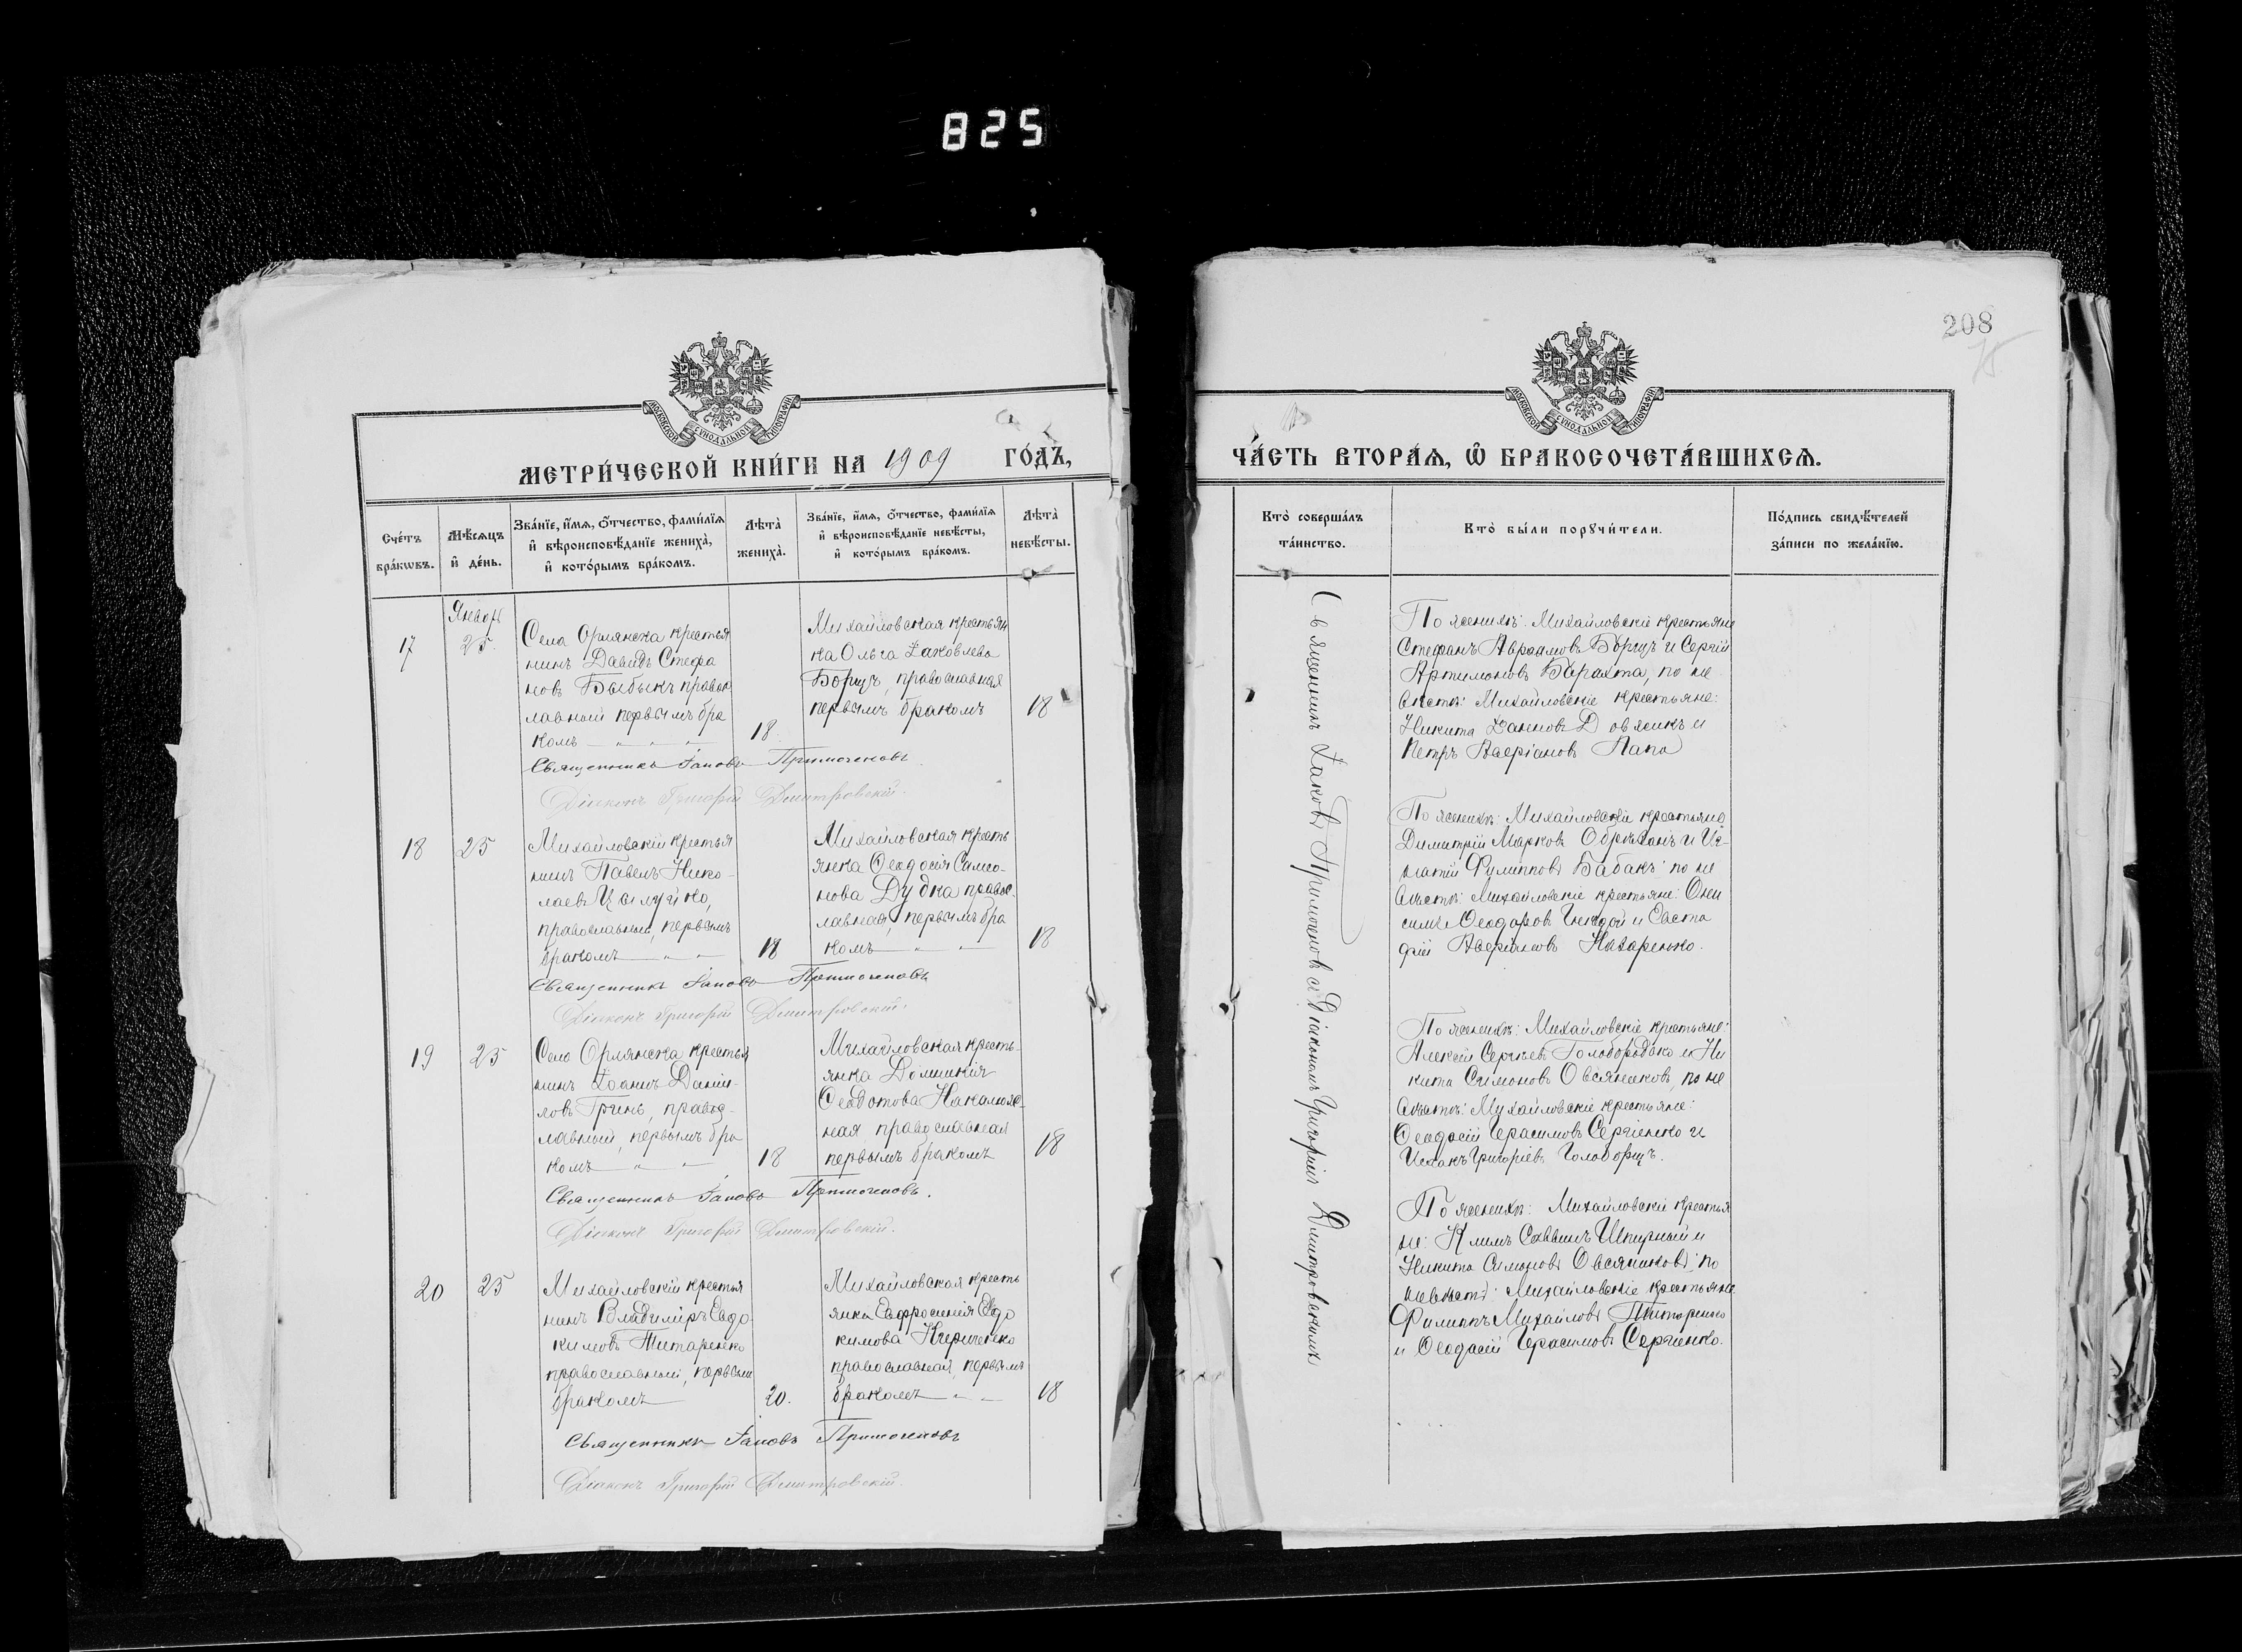 825
208
МОСКОВСКОЙ СУНОДАЛЬНОЙ ТИПОГРАФІИ
МОСКОВСКОЙ СУНОДАЛЬНОЙ ТИПОГРАФІИ
МЕТРИ́ЧЕСКОЙ КНИ́ГИ НА 1909 ГО́ДЪ,
Сче́тъ бра́кωвъ.
Мѣ́сѧцъ и҆ де́нь.
Зва́нїе, и҆́мѧ, ѻ҆́тчество, фами́лїѧ
и҆ вѣроисповѣ́данїе жениха̀,
и҆ кото́рымъ бра́комъ.
Лѣта̀ жениха̀.
Зва́нїе, и҆́мѧ, ѻ҆́тчество, фами́лїѧ
и҆ вѣроисповѣ́данїе невѣ́сты,
и҆ кото́рымъ бра́комъ.
Лѣта̀ невѣ́сты.
17
Январь
25.
Села Орлянска крестья
нинъ Давидъ Стефа
новъ Быбыкъ правос
лавный первымъ бра
комъ
18.
Михайловская крестьян
ка Ольга Іаковлева
Борщъ, православная
первымъ бракомъ
18
Священникъ Іаковъ Примоченовъ.
Діаконъ Григорій Дмитровскій.
18
25
Михайловскій крестья
нинъ Павелъ Нико-
лаевъ
православный, первымъ
бракомъ
18
Михайловская кресть
янка Ѳеодосія Симео-
нова Дудка правос.
лавная, первымъ бра
комъ
18
Священникъ Іаковъ Примоченовъ
Діаконъ Григорій Дмитровскій.
19
25
Села Орлянска крестья
нинъ Іоаннъ Даніи-
ловъ Гринь, правос-
лавный, первымъ бра
комъ
18
Михайловская кресть-
янка Домникія
Ѳеодотова
ная православная
первымъ бракомъ
18
Священникъ Іаковъ Примоченовъ.
Діаконъ Григорій Дмитровскій.
20
25
Михайловскій крестья
нинъ Владиміръ Евдо
кимовъ Титаренко
православный, первым
бракомъ
20.
Михайловская кресть
янка Евфросинія Евдо
кимова Кириченко
православная, первымъ
бракомъ
18
Священникъ Іаковъ Примоченовъ
Діаконъ Григорій Дмитровскій.
ЧА́СТЬ ВТОРА́Ѧ, Ѽ БРАКОСОЧЕТА́ВШИХСѦ.
Кто̀ соверша́лъ
та́инство.
Кто̀ бы́ли порꙋчи́тели.
По́дпись свидѣ́телей
за́писи по жела́нїю.
Священникъ Іаковъ Примоченовъ съ Діакономъ Григоріемъ Дмитровскимъ
По женихѣ: Михайловскіе крестьяне
Стефанъ Авраамовъ Борщъ и Сергій
Артимоновъ Барахта, по не
вѣстѣ: Михайловскіе крестьяне:
Никита Іакововъ Довжикъ и
Петръ Аверіановъ Лапа
По женихѣ: Михайловскіе крестьяне
Димитрій Марковъ и Иг-
натій Филипповъ Бабакъ: по не
вѣстѣ: Михайловскіе крестьяне: Они
симъ Ѳеодоровъ и Евста
фій Назаренко.
По женихѣ: Михайловскіе крестьяне:
Алексій Сергѣевъ Голобородько и Ни
кита Симоновъ Овсяниковъ, по не
вѣстѣ: Михайловскіе крестьяне:
Ѳеодосій Герасимовъ Сергіенко и
Исаакъ Григоріевъ Голоборщъ.
По женихѣ: Михайловскіе крестья
не: Климъ Саввинъ Шпирный и
Никита Симоновъ Овсяниковъ; по
невѣстѣ: Михайловскіе крестьяне
Филиппъ Михайловъ Титаренко
и Ѳеодосій Герасимовъ Сергіенко.